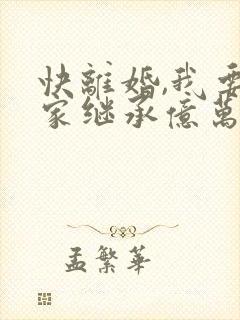 快離婚,我要
家继承億萬
孟繁華